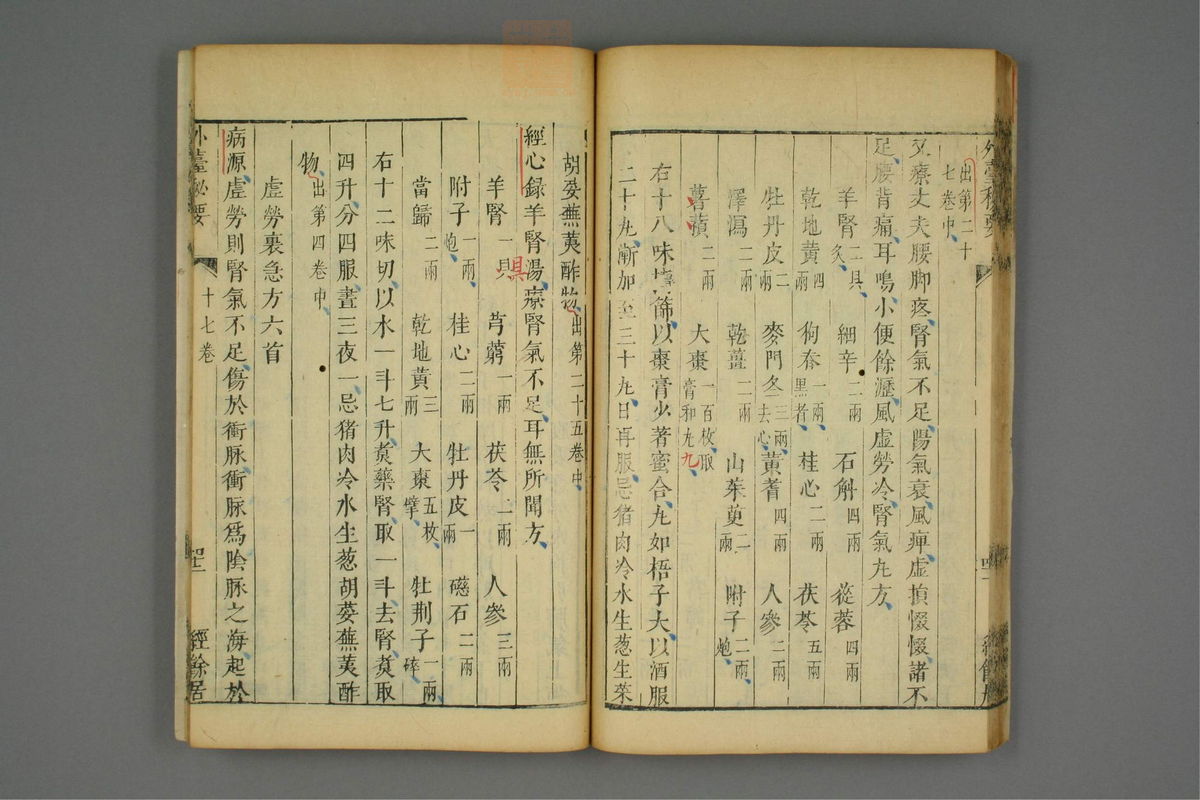 出第二十七卷中
又療丈夫腰脚疼腎氣不足陽氣衰風痺虛損惙惙諸不
足腰背痛耳鳴小便餘瀝風虛勞冷腎氣丸方
羊腎二具炙 細辛二兩 石斛四兩 蓯蓉四兩
乾地黃四兩 狗脊一兩黑者 桂心二兩 茯苓五兩
牡丹皮二兩 麥門冬三兩去心 黃耆四兩 人參二兩
澤瀉二兩 乾薑二兩 山茱萸二兩 附子二兩炮
蓍蕷二兩 大棗一百枚取膏和丸
右十八味擣篩以棗膏少著蜜合丸如梧子大以酒服
二十丸漸加至三十丸日再服忌猪肉冷水生葱生菜
胡荽蕪荑酢物出第二十五卷中
經心録羊腎湯療腎氣不足耳無所聞方
羊腎一具 芎藭一兩 茯苓二兩 人參三兩
附子一兩炮 桂心二兩 牡丹皮一兩 磁石二兩
當歸二兩 乾地黃三兩 大棗五枚擘 牡荆子一兩碎
右十二味切以水一斗七升煑藥腎取一斗去腎煑取
四升分四服晝三夜一忌猪肉冷水生葱胡荽蕪荑酢
物出第四卷中
虛勞裏急方六首
病源虛勞則腎氣不足傷於衝脉衝脉爲陰脉之海起於
外臺秘要 十七卷 經餘居